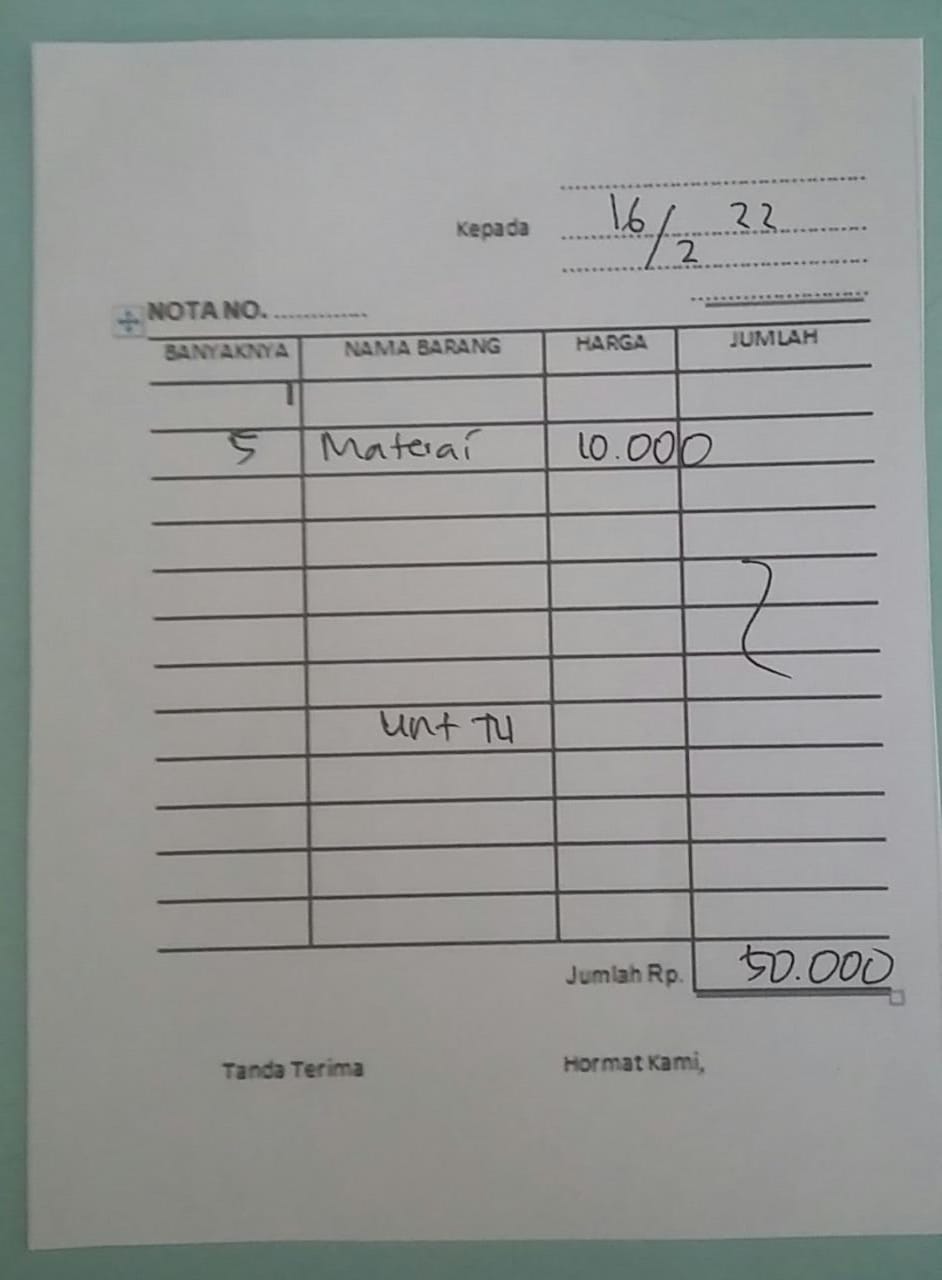 16/2 22
Kepada
NOTA NO. .............
BANYAKNYA NAMA BARANG HARGA JUMLAH
5 Materai 10.000
unt TU
Jumlah Rp. 50.000
Tanda Terima Hormat Kami,